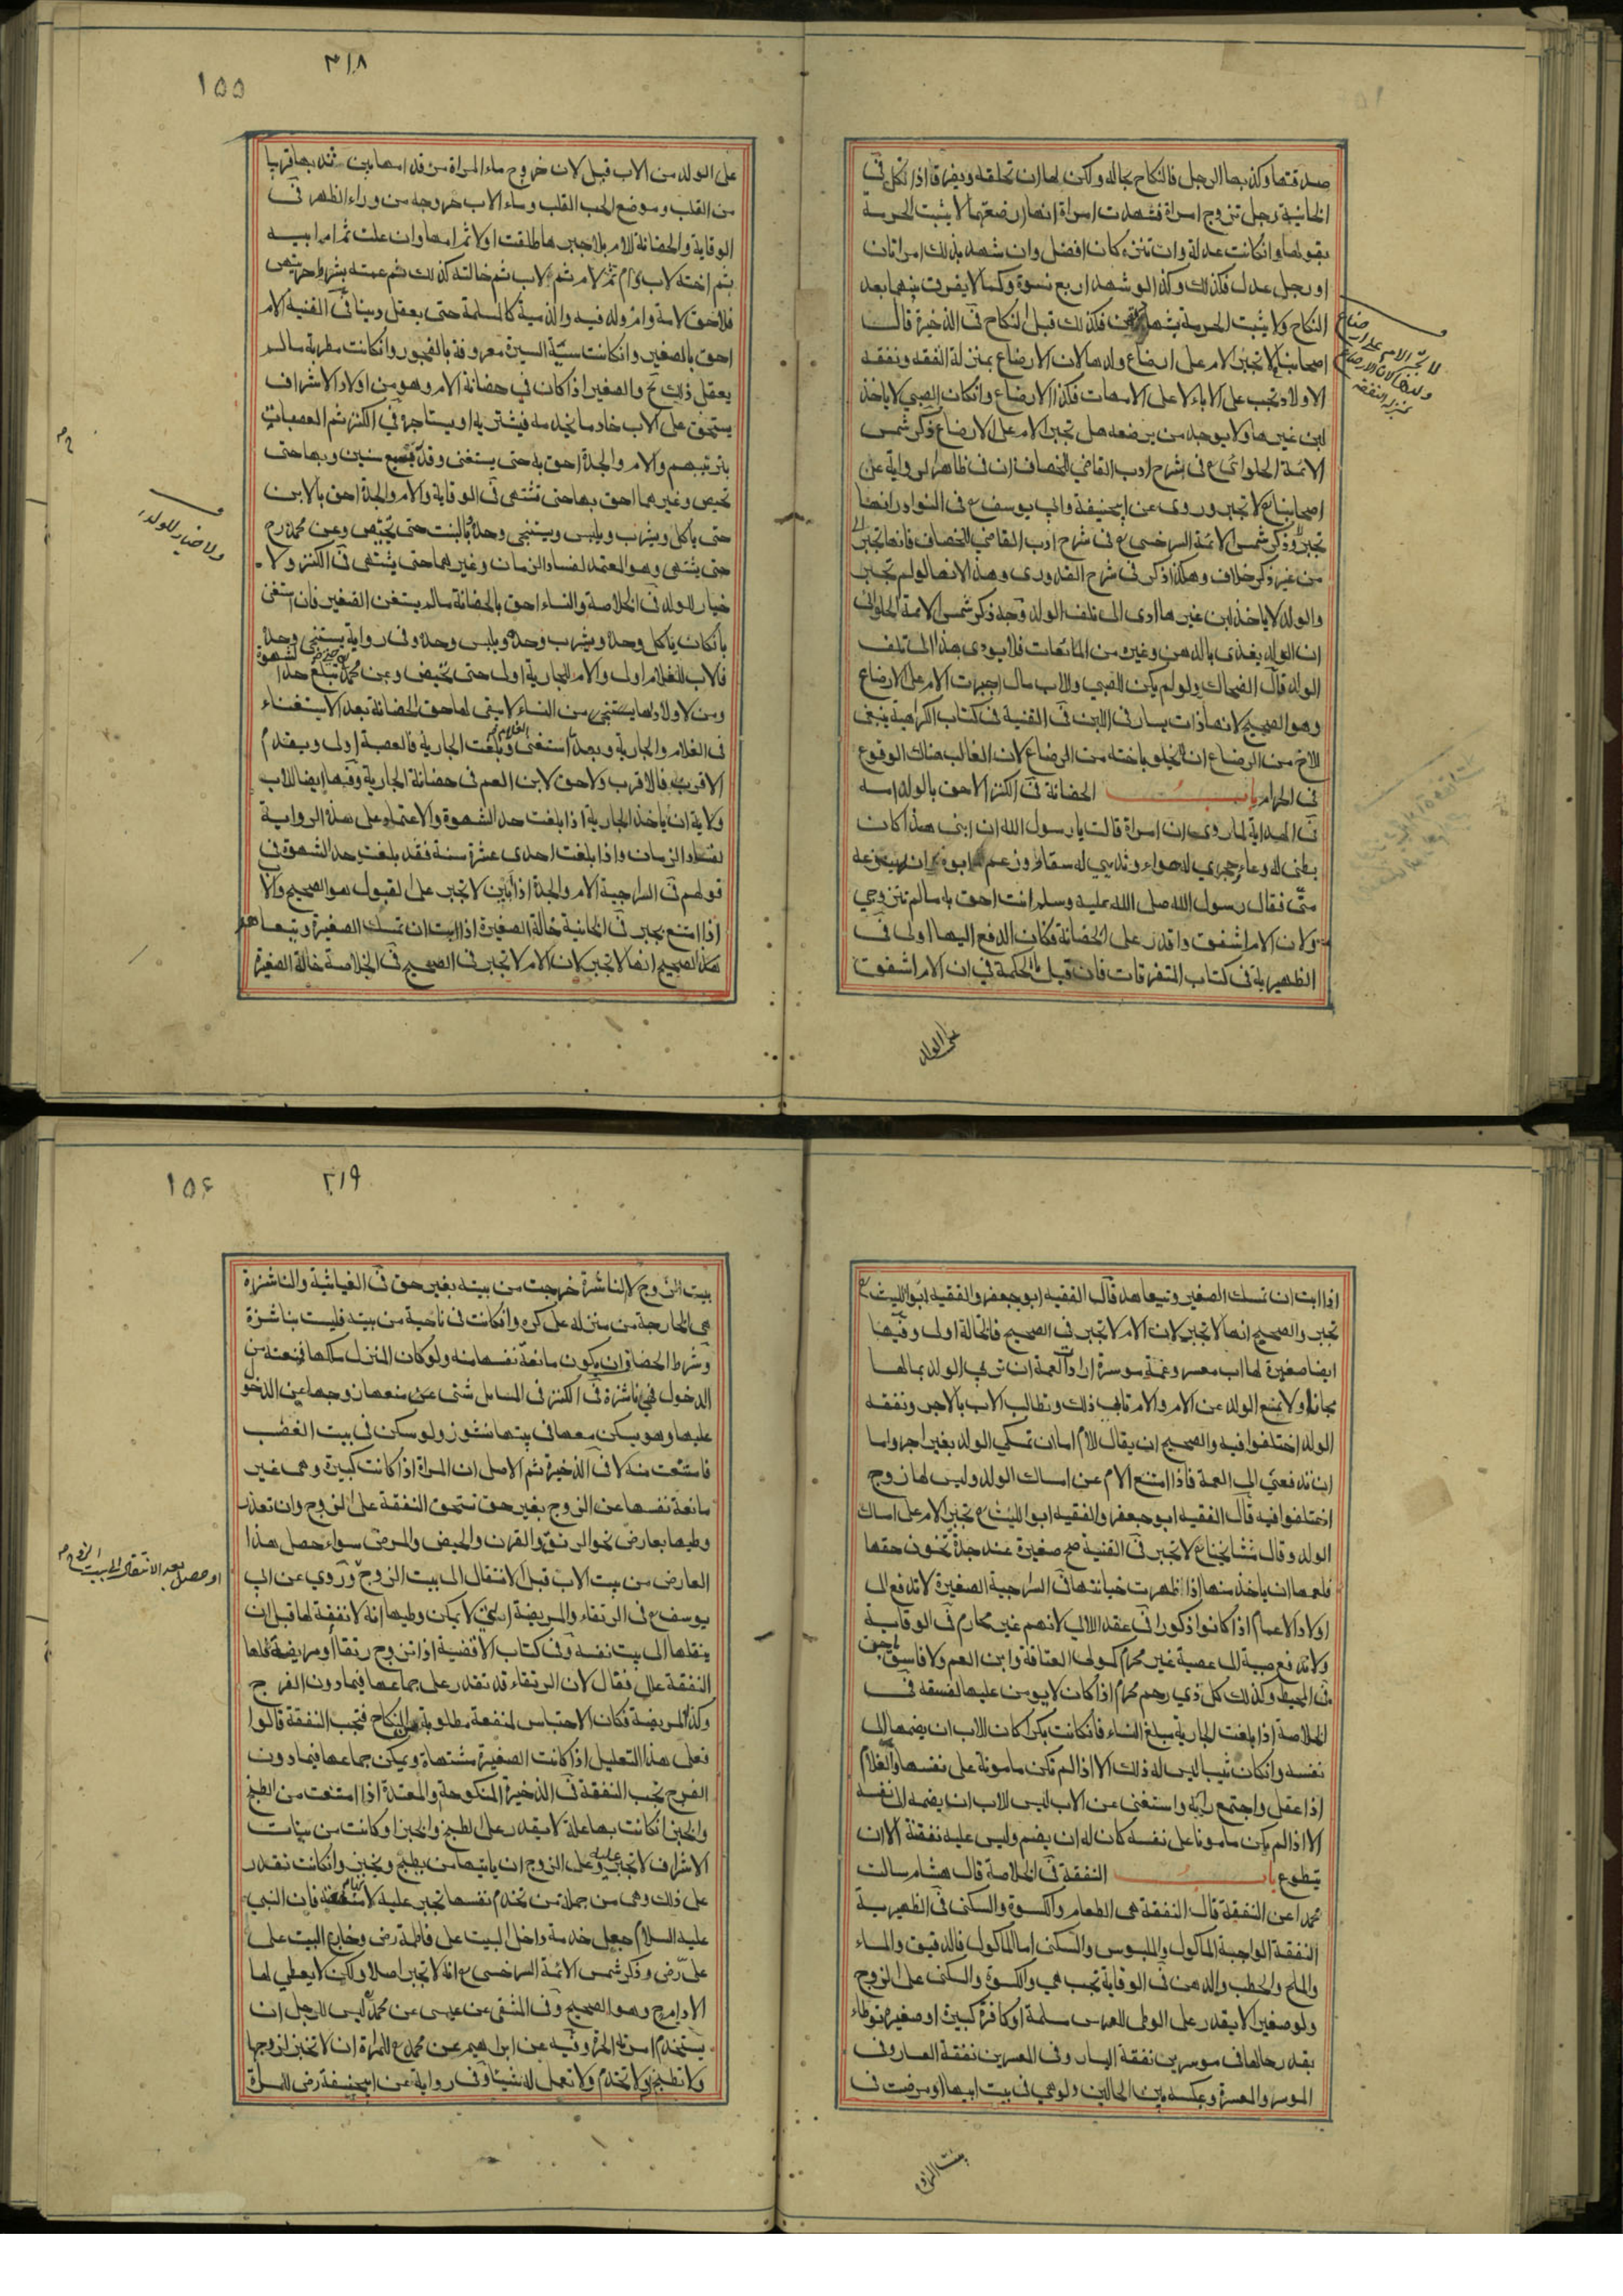 صدقتها وكذبها الرجل فالنكاح بحاله ولكن لها ان تحلفه ويفرق اذا نكل في
الخانية رجل تزوج امراة فشهدت امراة انها ارضعتهما لا يثبت الحرمة
بقولها وانكانت عدلة وان تنزه كان افضل وان شهد بذلك امراتان
او رجل عدل فكذلك وكذا لو شهد اربع نسوة وكما لا يفرق بينهما بعد
النكاح ولا يثبت الحرمة بشهادتهن فكذلك قبل النكاح في الذخيرة قال
اصحابنا لا تجبر الام على ارضاع ولدها لان الارضاع بمنزلة النفقة ونفقة
الاولاد تجب على الاباء لا على الامهات فكذا الارضاع وانكان الصبي لا ياخذ
لبن غيرها ولا يوجد من يرضعه هل تجبر الام على الارضاع ذكر شمس
الائمة الحلوائي ع في شرح ادب القاضي للخصاف ان في ظاهر الرواية عن
اصحابنا ع لا تجبر وروى عن ابيحنيفة وابي يوسف ع في النوادر انها
تجبر وذكر شمس الائمة السرخسي ع في شرح ادب القاضي للخصاف فانها تجبر
من غير ذكر خلاف وهكذا ذكر في شرح القدوري وهذا لانها لو لم تجبر
والولد لا ياخذ لبن غيرها ادى الى تلف الولد وجه ذكر شمس الائمة الحلوائي
ان الولد يغذى بالدهن وغيره من المائعات فلا يودى هذا الى تلف
الولد قال الضحاك ولو لم يكن للصبي وللاب مال اجبرت الام على الارضاع
وهو الصحيح لانها ذات يسار في اللبن في القنية في كتاب الكراهية ينبغى
للاخ من الرضاع ان لا يخلو باخته من الرضاع لان الغالب هناك الوقوع
في الحرام باب الحضانة في الكنز الاحق بالولد امه
في الهداية لما روى ان امراة قالت يا رسول الله ان ابنى هذا كان
بطنى له وعاء وحجرى له حواء وثديي له سقاء وزعم ابوه انه ينزعه
منّى فقال رسول الله صلى الله عليه وسلم انت احق به مالم تتزوجي
ولان الام اشفق واقدر على الحضانة فكان الدفع اليها اولى في
الظهيرية في كتاب المتفرقات فان قيل ما الحكمة في ان الام اشفق
لا تجبر الام على ارضاع
ولدها لان الارضاع
بمنزلة النفقة
على الولد
٣١٨
١٥٥
على الولد من الاب قيل لان خروج ماء المراة من قدامها بين ثدييها قريبا
من القلب وموضع الحب القلب وماء الاب خروجه من وراء الظهر في
الوقاية والحضانة للام بلا جبرها طلقت اولا ثم امها وان علت ثم ام ابيه
ثم اخته لاب وام ثم لام ثم لاب ثم خالته كذلك ثم عمته بشرط حريتهن
فلا حق لامة وام ولد فيه والذمية كالمسلمة حتى يعقل دينا في القنية الام
احق بالصغير وانكانت سيّئة السيرة معروفة بالفجور وانكانت مطربة مالم
يعقل ذلك والصغير اذا كان في حضانة الام وهو من اولاد الاشراف
يستحق على الاب خادما يخدمه فيشتريه او يستاجره في الكنز ثم العصبات
بترتيبهم والام والجدة احق به حتى يستغنى وقدّر بسبع سنين وبها حتى
تحيض وغيرهما احق بها حتى تشتهى في الوقاية والام والجدة احق بالابن
حتى ياكل ويشرب ويلبس ويستنجى وحده وبالبنت حتى تحيض وعن محمد رح
حتى يشتهى وهو المعتمد لفساد الزمان وغيرهما حتى يشتهى في الكنز ولا
خيار للولد في الخلاصة والنساء احق بالحضانة مالم يستغن الصغير فان استغنى
بان كان ياكل وحده ويشرب وحده ويلبس وحده وفى رواية يستنجى وحده
فالاب للغلام اولى والام للجارية اولى حتى تحيض وعن محمد تبلغ حد الشهوة
ومن لا ولاد لها يستنجى من النساء لا يبقى لها حق الحضانة بعد الاستغناء
في الغلام والجارية وبعد ما استغنى الغلام وبلغت الجارية فالعصبة اولى ويقدم
الاقرب فالاقرب ولا حق لابن العم في حضانة الجارية وفيها ايضا للاب
ولاية ان ياخذ الجارية اذا بلغت حد الشهوة والاعتماد على هذه الرواية
لفساد الزمان واذا بلغت احدى عشرة سنة فقد بلغت حد الشهوة في
قولهم في السراجية الام والجدة اذا ابين لا تجبر على القبول هو الصحيح والاب
اذا امتنع يجبر في الخانية خالة الصغيرة اذا ابت ان تمسك الصغيرة وتبيعها هل
هذا الصحيح انها لا تجبر لان الام لا تجبر في الصحيح في الخلاصة خالة الصغيرة
ولا خيار للولد
اذا ابت ان تمسك الصغير وتبيعها هد قال الفقيه ابو جعفر والفقيه ابو الليث ع
تجبر والصحيح انها لا تجبر لان الام لا تجبر في الصحيح فالخالة اولى وفيها
ايضا صغيرة لها اب معسر وعمة موسرة ارادت العمة ان تربي الولد بمالها
مجانا ولا تمنع الولد عن الام والام تابى ذلك وتطالب الاب بالاجر ونفقة
الولد اختلفوا فيه والصحيح ان يقال للام اما ان تمسكي الولد بغير اجر واما
ان تدفعي الى العمة فاذا امتنع الام عن امساك الولد وليس لها زوج
اختلفوا فيه قال الفقيه ابو جعفر والفقيه ابو الليث ع تجبر الام على امساك
الولد وقال مشايخنا ع لا تجبر في القنية صح صغيرة عند جدة تخون حقها
فلعمها ان ياخذ منها اذا ظهرت خيانتها في السراجية الصغيرة لا تدفع الى
اولاد الاعمام اذا كانوا ذكورا في عقد اللالي لانهم غير محارم في الوقاية
ولا تدفع صبية الى عصبة غير محرم كمولى العتاقة وابن العم ولا فاسق ماجن
في المحيط وكذلك كل ذي رحم محرم اذا كان لا يومن عليها لفسقه في
الخلاصة اذا بلغت الجارية مبلغ النساء فانكانت بكرا كان للاب ان يضمها الى
نفسه وانكان ثيبا ليس له ذلك الا اذا لم تكن مامونة على نفسها والغلام
اذا عقل واجتمع رايه واستغنى عن الاب ليس للاب ان يضمه الى نفسه
الا اذا لم يكن مامونا على نفسه كان له ان يضم وليس عليه نفقته الا ان
يتطوع باب النفقة في الخلاصة قال هشام سالت
محمدا عن النفقة قال النفقة هى الطعام والكسوة والسكنى في الظهيرية
النفقة الواجبة الماكول والملبوس والسكنى اما الماكول فالدقيق والماء
والملح والحطب والدهن في الوقاية تجب هي والكسوة والسكنى على الزوج
ولو صغيرا لا يقدر على الوطى للعرس مسلمة او كافرة كبيرة او صغيرة توطاء
بقدر حالهما في موسرين نفقة اليسار وفي المعسرين نفقة العسار وفى
الموسر والمعسرة وعكسه بين الحالين ولو هي في بيت ابيها او مرضت في
بيت الزوج
٢١٩
١٥۶
بيت الزوج لا لناشزة خرجت من بيته بغير حق في الغياثية والناشزة
هي الخارجة من منزله على كره وانكانت في ناحية من بيته فليست بناشزة
وشرط الحضاف ان يكون مانعة نفسها منه ولو كان المنزل ملكها فمنعته من
الدخول فهي ناشزة في الكنز في المسايل شتى عن منعها زوجها عن الدخول
عليها وهو يسكن معها في بيتها نشوز ولو سكن في بيت الغصب
فامتنعت منه لا في الذخيرة ثم الاصل ان المراة اذا كانت كبيرة وهى غير
مانعة نفسها عن الزوج بغير حق تستحق النفقة على الزوج وان تعذر
وطيها بعارض نحو الرتق والقرن والحيض والمرض سواء حصل هذا
العارض من بيت الاب قبل الانتقال الى بيت الزوج وروي عن ابي
يوسف ع في الرتقاء والمريضة التي لا يمكن وطيها انه لا نفقة لها قبل ان
ينقلها الى بيت نفسه وفي كتاب الاقضية اذا تزوج رتقا او مريضة فلها
النفقة علل فقال لان الرتقاء قد تقدر على جماعها فيما دون الفرج
وكذا المريضة فكان الاحتباس لمنفعة مطلوبة من النكاح فتجب النفقة قالوا
فعلى هذا التعليل اذا كانت الصغيرة مشتهاة ويمكن جماعها فيما دون
الفرج تجب النفقة في الذخيرة المنكوحة والمعتدة اذا امتنعت من الطبخ
والخبز انكانت بها علة لا يقدر على الطبخ والخبز او كانت من بنات
الاشراف لا تجبر عليه وعلى الزوج ان ياتيها من يطبخ ويخبز وانكانت تقدر
على ذلك وهى من جملة من تخدم نفسها تجبر عليه فان النبي
عليه السلام جعل خدمة داخل البيت على فاطمة رض وخارج البيت على
علىّ رض وذكر شمس الائمة السرخسى ع انه لا تجبر اصلا ولكن لا يعطي لها
الادام ح وهو الصحيح وفي المنتقى عن عيسى عن محمد ليس للرجل ان
يستخدم امراته الحرة وفيه عن ابراهيم عن محمد ع للمراة ان لا تخبز لزوجها
ولا تطبخ ولا تخدم ولا تعمل له شيئا وفى رواية عن ابيحنيفة رض للمراة
او حصل بعد الانتقال الى بيت الزوج